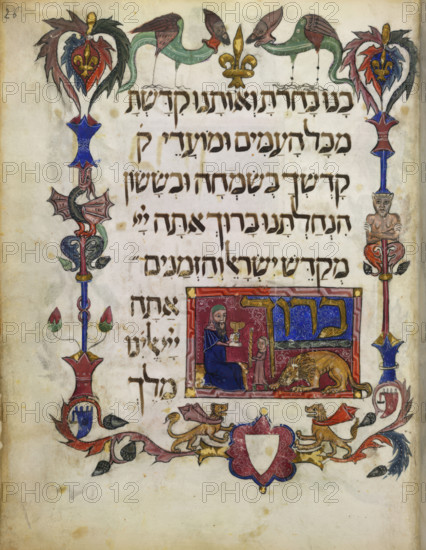 26
בנו בחרת ואותנו קדשת
מכל העמים ומועדי ק
קדשך בשמחה ובששון
הנחלתנו ברוך אתה ייי
מקדש ישראל והזמנים
ברוך
אתה
ייי אלהינו
מלך
PHOTO12